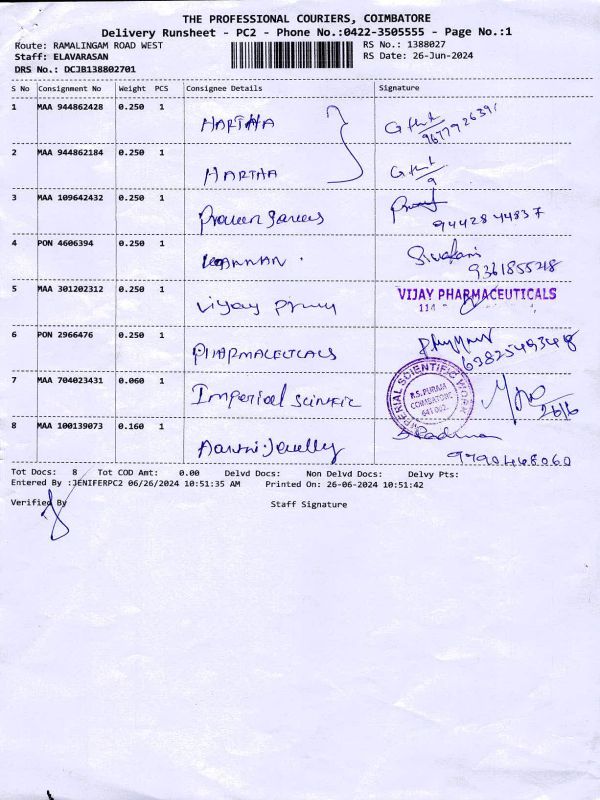 THE PROFESSIONAL COURIERS, COIMBATORE
Delivery Runsheet - PC2 - Phone No.:0422-3505555 - Page No.:1
Route: RAMALINGAM ROAD WEST RS No.: 1388027
Staff: ELAVARASAN RS Date: 26-Jun-2024
DRS No.: DCJB138802701
S No Consignment No Weight PCS Consignee Details Signature
1 MAA 944862428 0.250 1 MARTHA
2 MAA 944862184 0.250 1 MARTHA
3 MAA 109642432 0.250 1 Praveen Sarees 9442844837
4 PON 4606394 0.250 1 KANNAN Sivakani
9361855218
5 MAA 301202312 0.250 1 Vijay VIJAY PHARMACEUTICALS
114
6 PON 2966476 0.250 1 PHARMACEUTICALS 6382549348
7 MAA 704023431 0.060 1 Imperial Scintific IMPERIAL SCIENTIFIC WORK R.S. PURAM COIMBATORE 641 002. 26/6
8 MAA 100139073 0.160 1 Jewelly
Tot Docs: 8 Tot COD Amt: 0.00 Delvd Docs: Non Delvd Docs: Delvy Pts:
Entered By :JENIFERPC2 06/26/2024 10:51:35 AM Printed On: 26-06-2024 10:51:42
Verified By Staff Signature